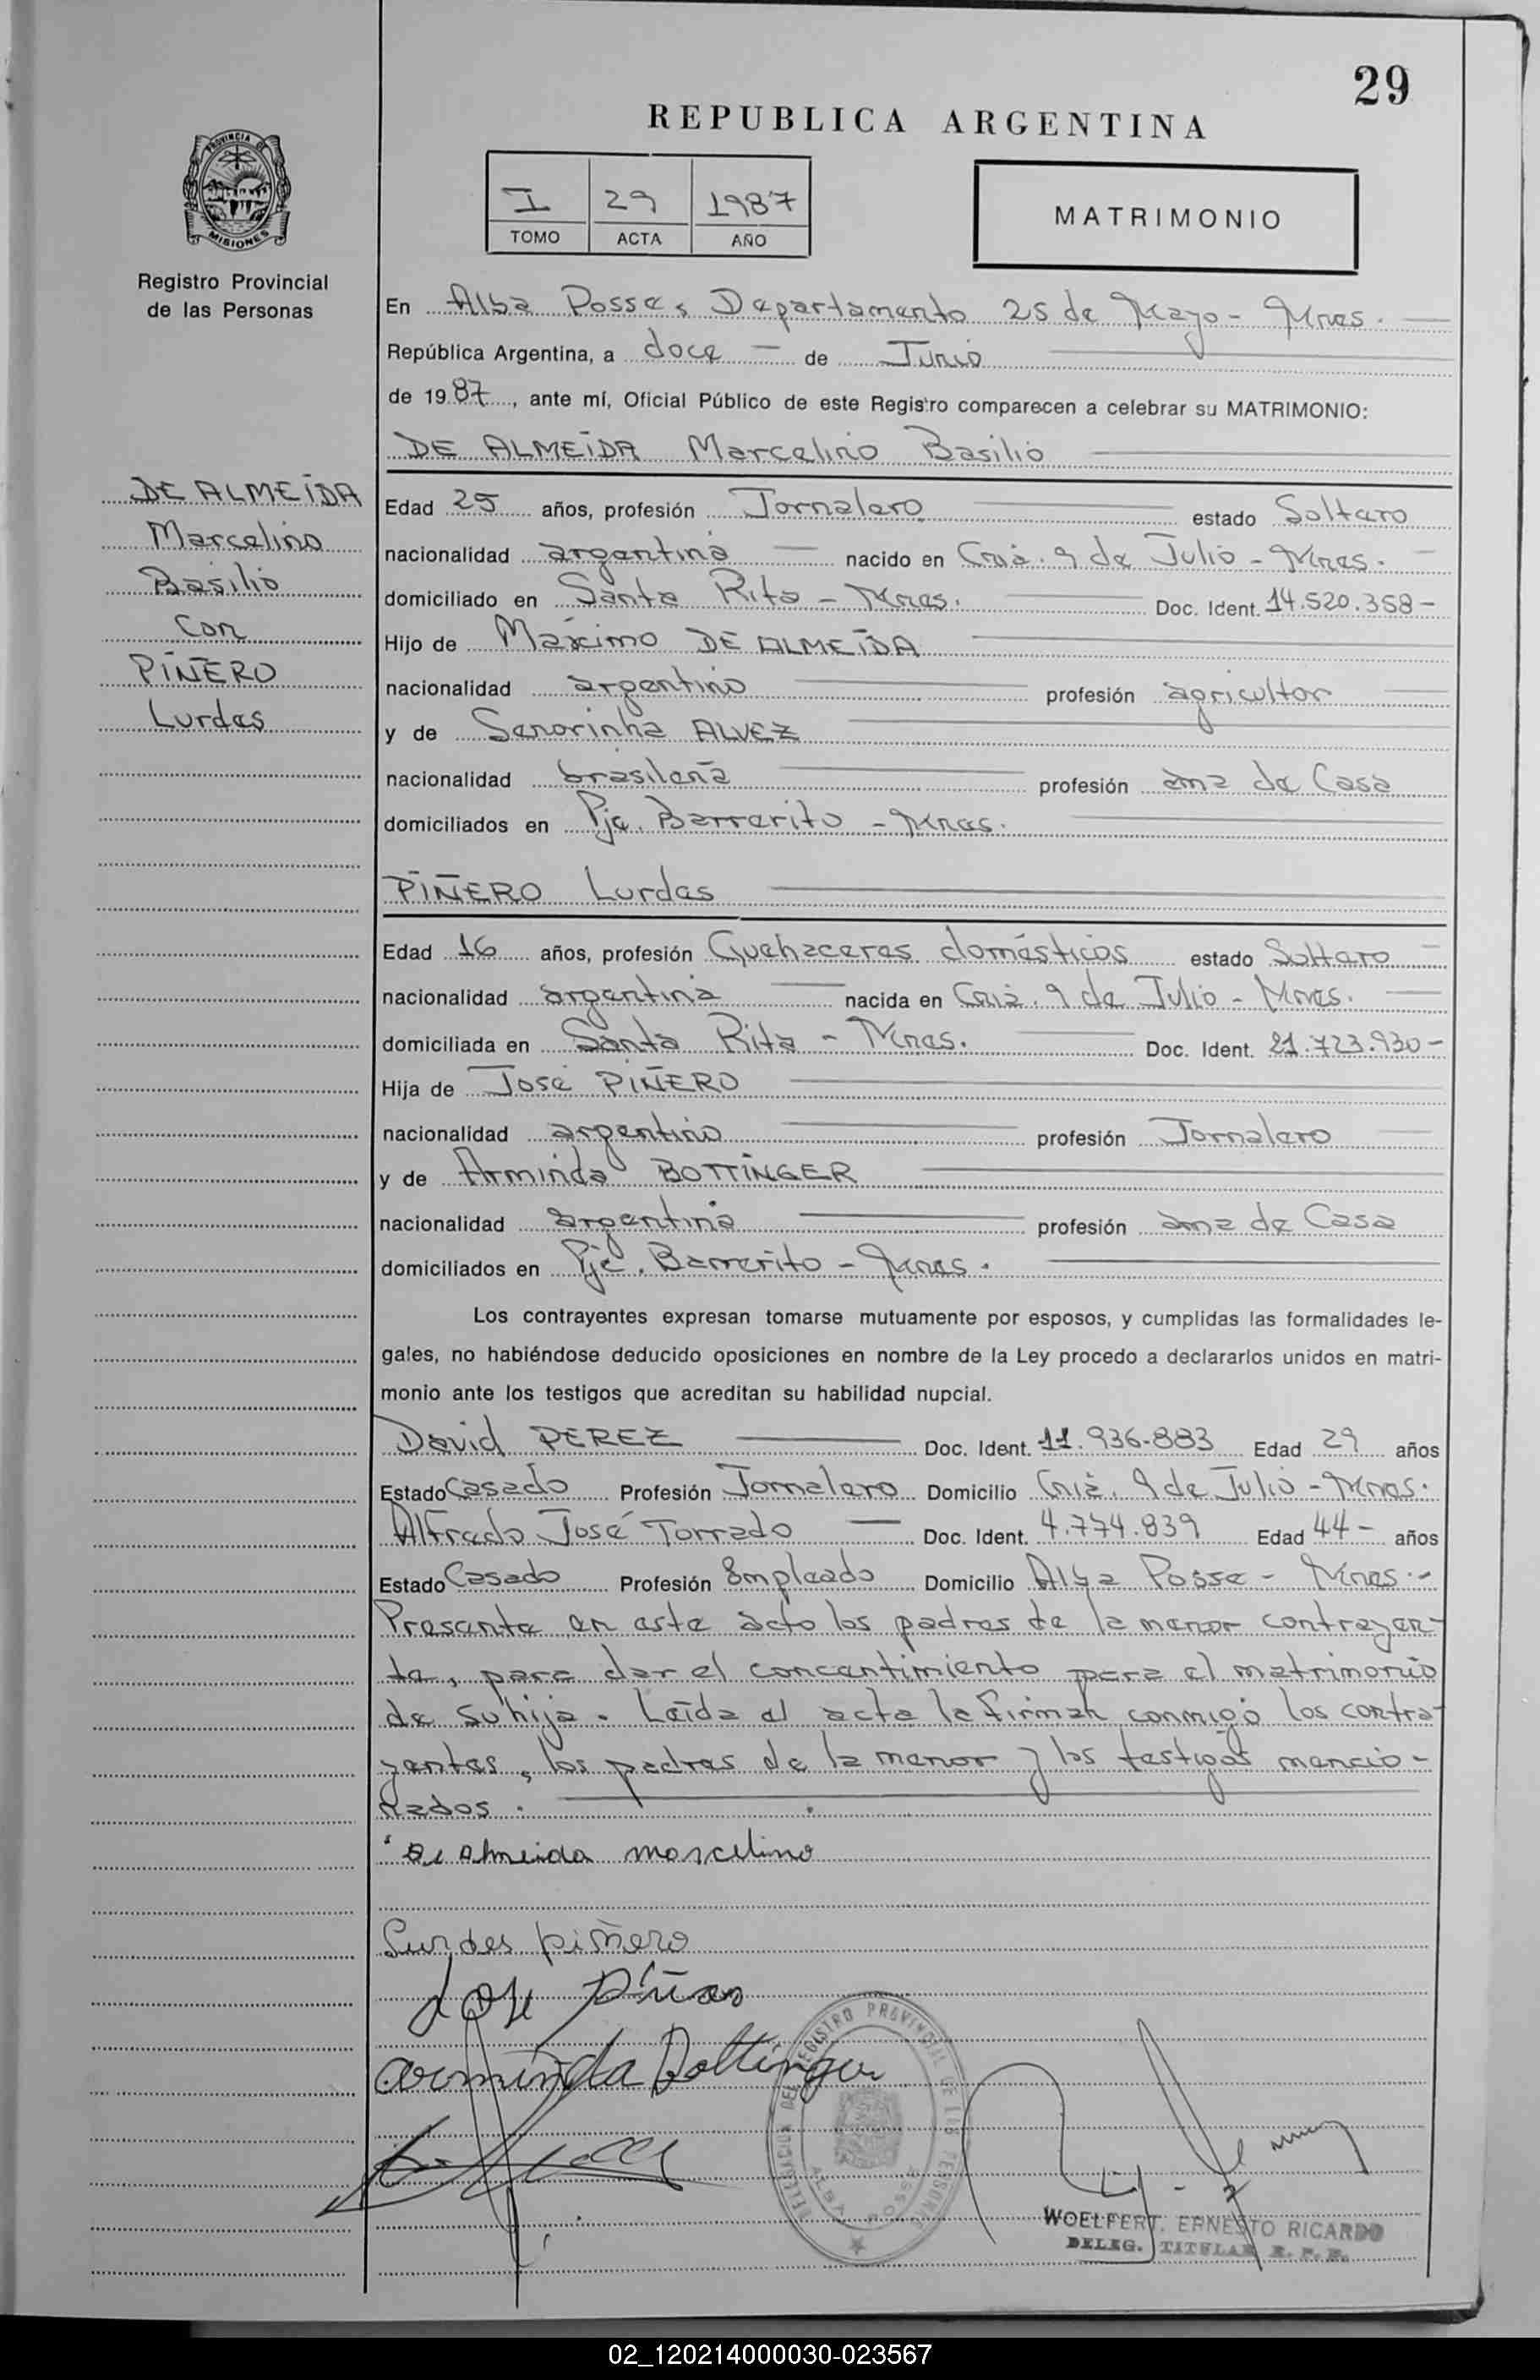 29
REPUBLICA ARGENTINA
PROVINCIA DE
MISIONES
Registro Provincial
de las Personas
I 29 1987
TOMO ACTA AÑO
MATRIMONIO
En Alba Posse, Departamento 25 de Mayo - Mnes.
República Argentina, a doce de Junio
de 1987, ante mí, Oficial Público de este Registro comparecen a celebrar su MATRIMONIO:
DE ALMEIDA Marcelino Basilio
DE ALMEIDA
Marcelino
Basilio
con
PIÑERO
Lurdes
Edad 25 años, profesión Jornalero estado Soltero
nacionalidad argentina nacido en Cnia. 9 de Julio - Mnes.
domiciliado en Santa Rita - Mnes. Doc. Ident. 14.520.358-
Hijo de Máximo DE ALMEIDA
nacionalidad argentino profesión agricultor
y de Senorinha ALVEZ
nacionalidad brasilena profesión ama de Casa
domiciliados en Pje. Barrerito - Mnes.
PIÑERO Lurdes
Edad 16 años, profesión Quehaceres domésticos estado Soltero
nacionalidad argentina nacida en Cnia. 9 de Julio - Mnes.
domiciliada en Santa Rita - Mnes. Doc. Ident. 21.723.930-
Hija de José PIÑERO
nacionalidad argentino profesión Jornalero
y de Arminda BOTTINGER
nacionalidad argentina profesión ama de Casa
domiciliados en Pje. Barrerito - Mnes.
Los contrayentes expresan tomarse mutuamente por esposos, y cumplidas las formalidades le-
gales, no habiéndose deducido oposiciones en nombre de la Ley procedo a declararlos unidos en matri-
monio ante los testigos que acreditan su habilidad nupcial.
David PEREZ Doc. Ident. 11.936.883 Edad 29 años
Estado Casado Profesión Jornalero Domicilio Cnia. 9 de Julio - Mnes.
Alfredo José Torrado Doc. Ident. 4.774.839 Edad 44- años
Estado Casado Profesión Empleado Domicilio Alba Posse - Mnes.-
Presente en este acto los padres de la menor contrayen-
te, para dar el concentimiento para el matrimonio
de su hija. Leída el acta la firman conmigo los contra-
yentes, los padres de la menor y los testigos mencio-
nados.
De Almeida marcelino
Lurdes piñero
José Piñero
arminda Bottinger
DELEGACION DEL REGISTRO PROVINCIAL DE LAS PERSONAS
ALBA POSSE
WOELFERT, ERNESTO RICARDO
DELEG. TITULAR R. P. P.
02_120214000030-023567